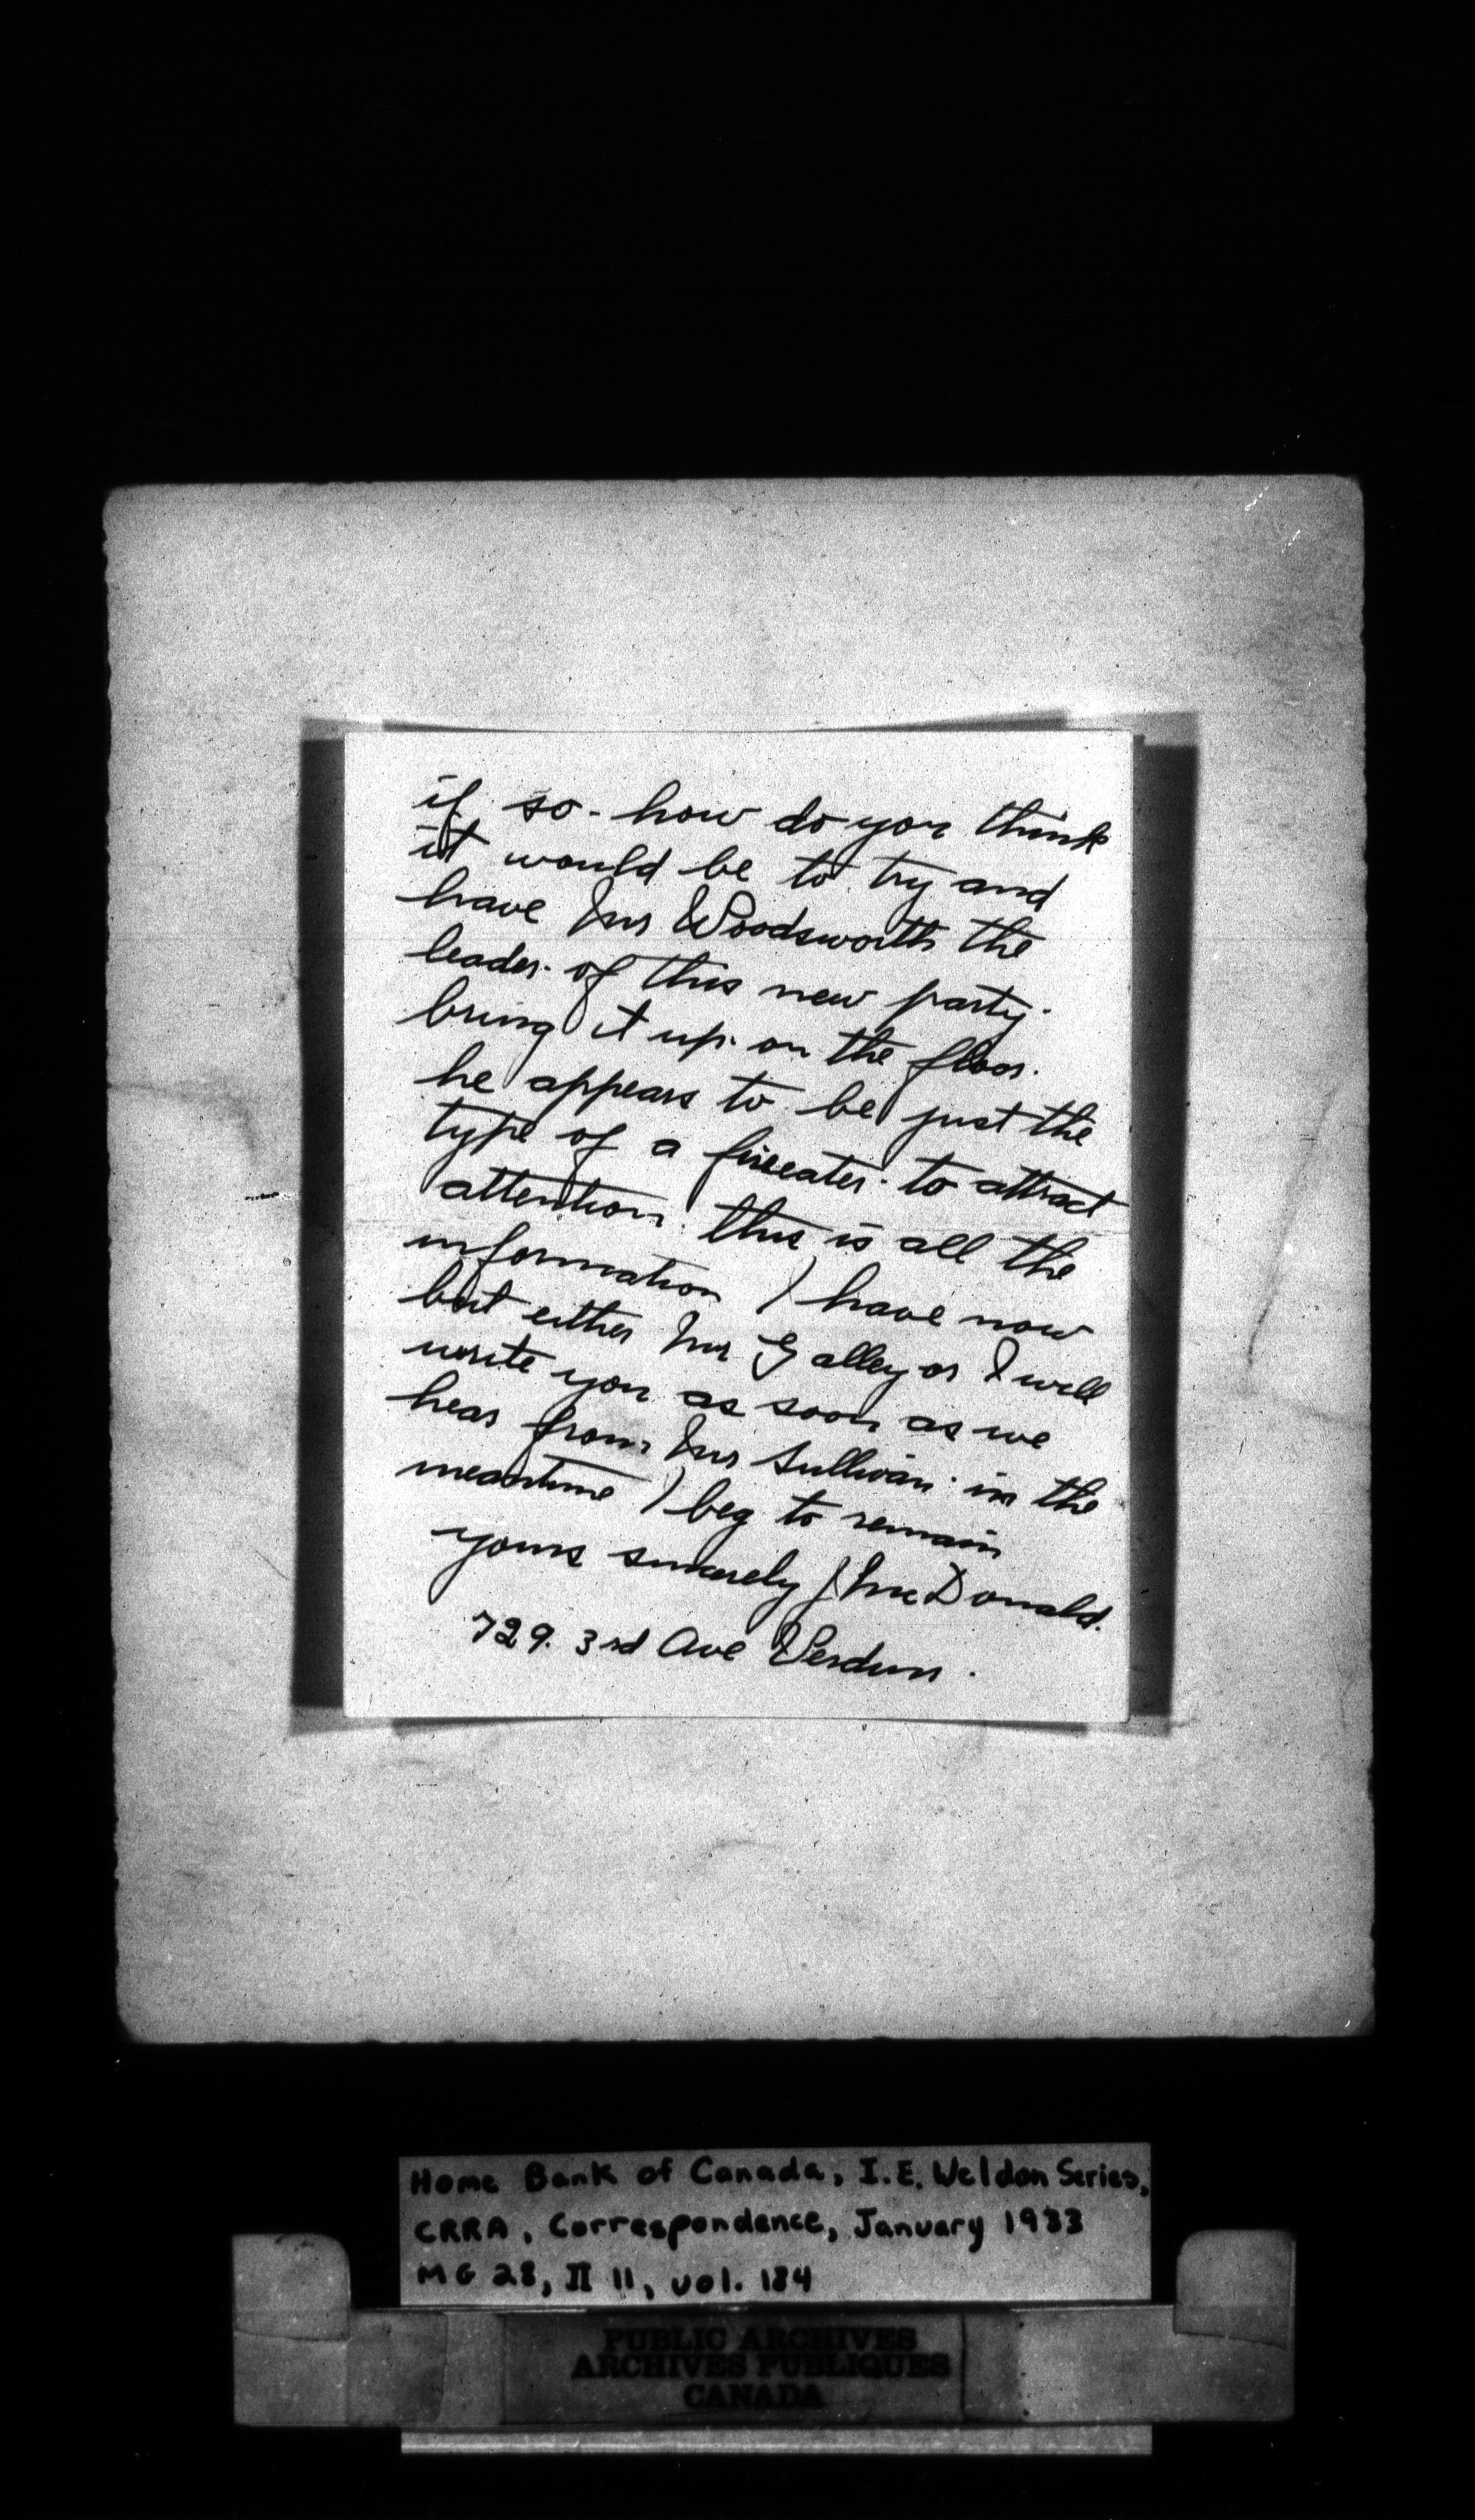 if so - how do you think
it would be to try and
have Mr Woodsworth the
leader of this new party.
bring it up on the floor.
he appears to be just the
type of a fireeater to attract
attention. this is all the
information I have now
but either Mr Galley or I will
write you as soon as we
hear from Mr Sullivan in the
meantime I beg to remain
yours sincerely J McDonald.
729. 3rd Ave Verdun.
Home Bank of Canada, I.E. Weldon Series,
CRRA, Correspondence, January 1933
MG 28, II 11, vol. 184
PUBLIC ARCHIVES
ARCHIVES PUBLIQUES
CANADA